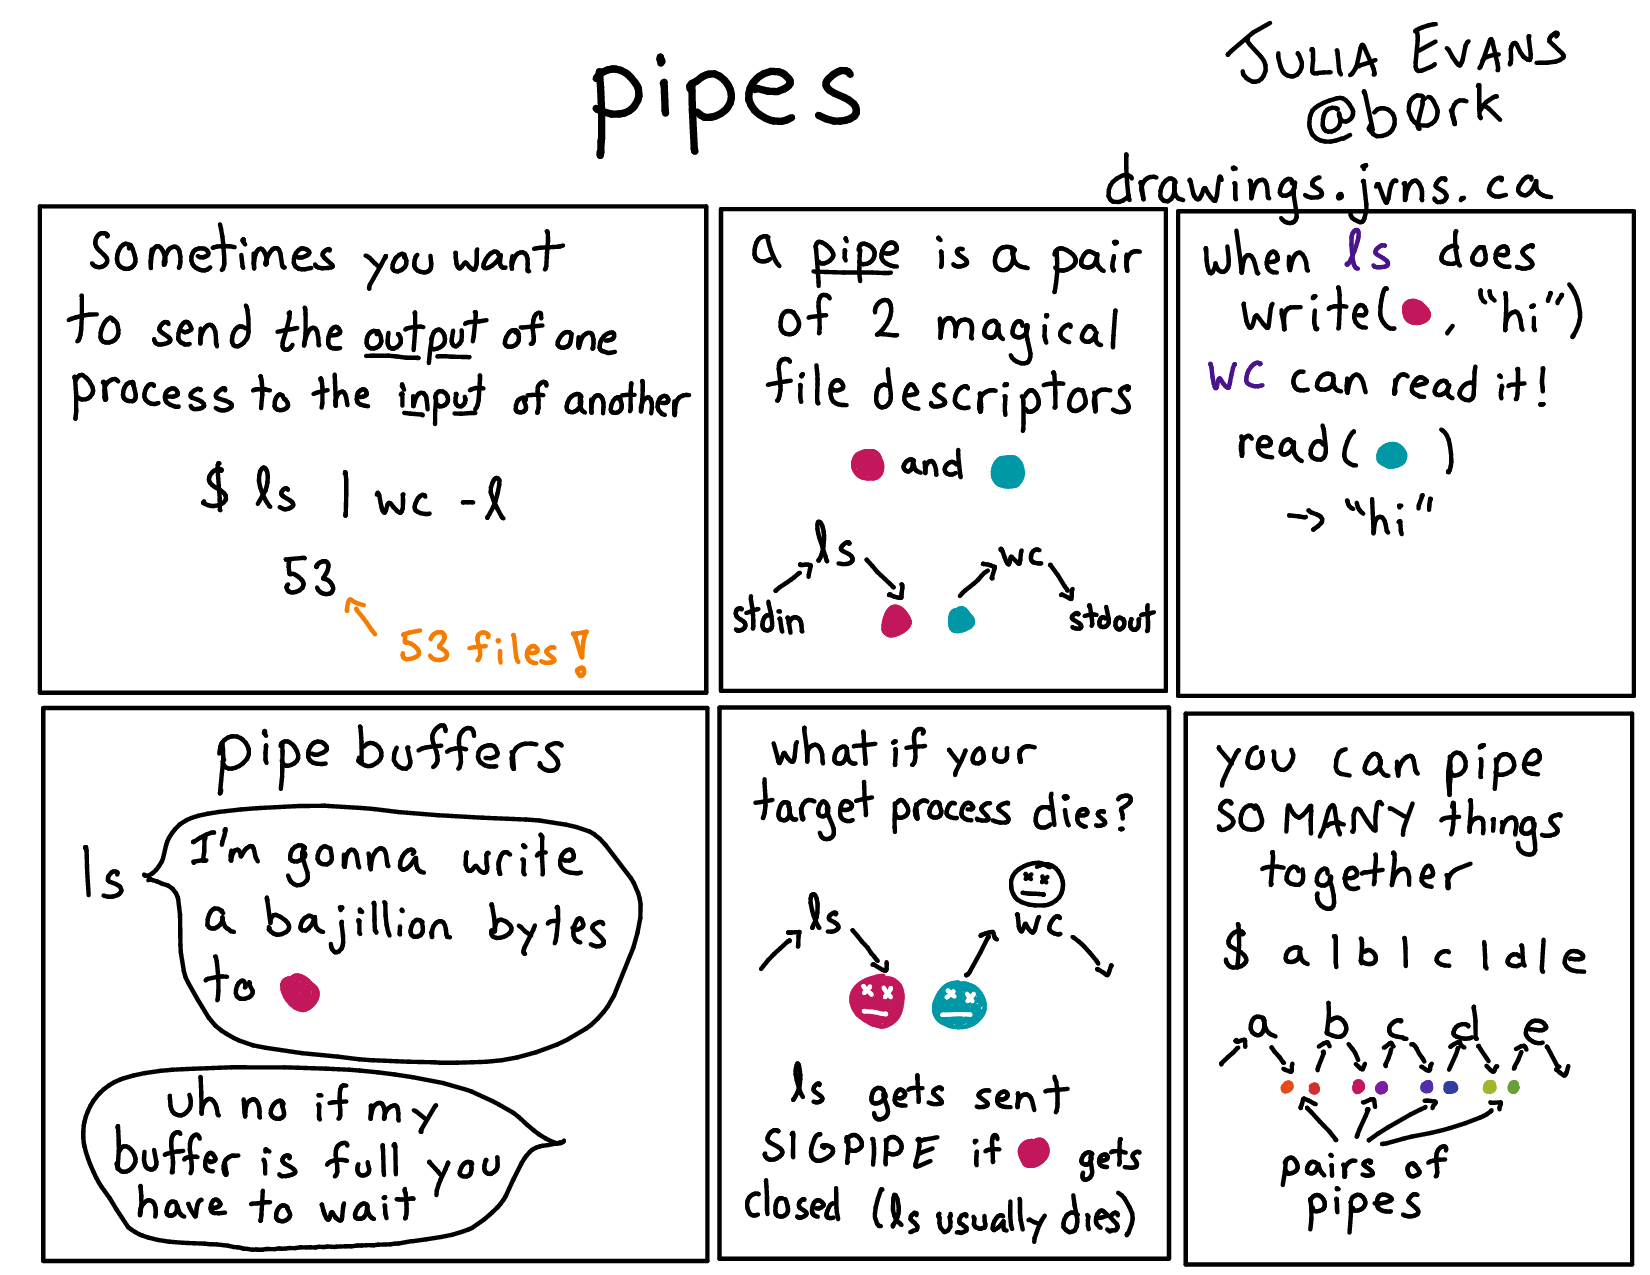 pipes
JULIA EVANS
@bØrk
drawings.jvns.ca
sometimes you want
to send the output of one
process to the input of another
$ ls | wc -l
53
53 files!
a pipe is a pair
of 2 magical
file descriptors
and
ls
wc
stdin
stdout
when ls does
write( , "hi")
wc can read it!
read( )
→ "hi"
pipe buffers
ls
I'm gonna write
a bajillion bytes
to
uh no if my
buffer is full you
have to wait
what if your
target process dies?
ls
wc
ls gets sent
SIGPIPE if gets
closed (ls usually dies)
you can pipe
SO MANY things
together
$ a|b|c|d|e
a b c d e
pairs of
pipes